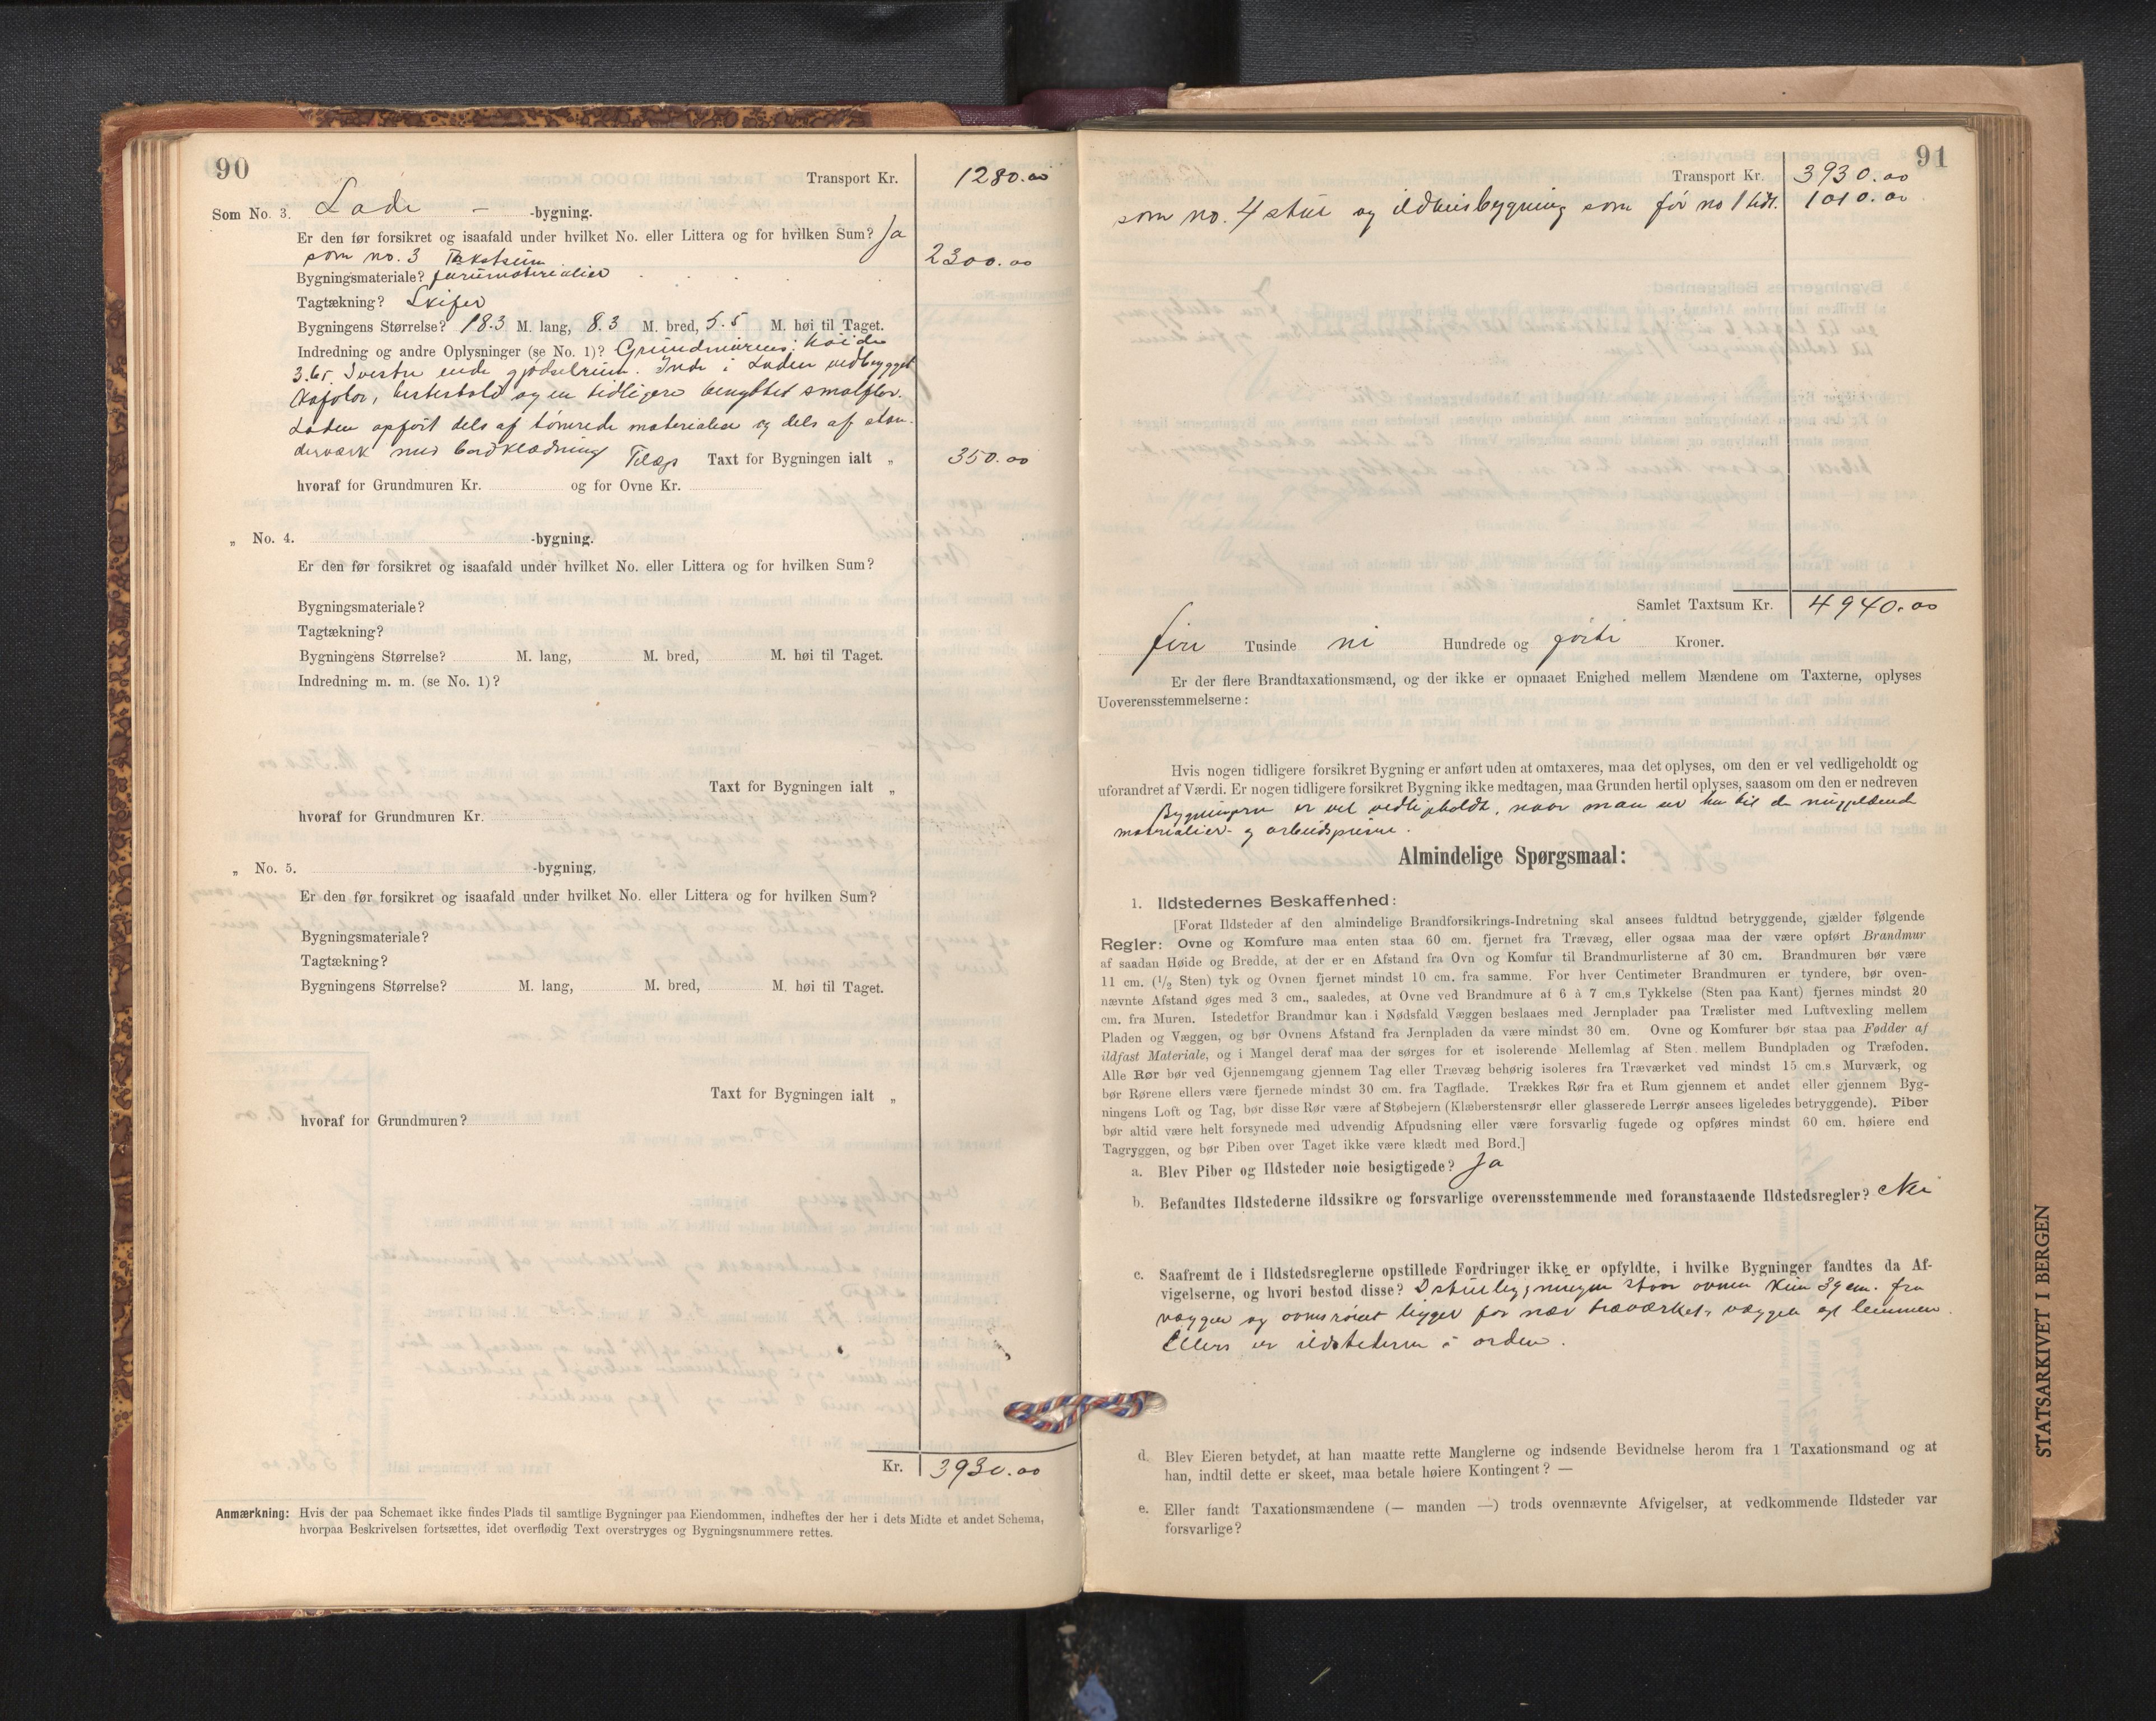 90
Transport Kr. 1280.00
Som No. 3. Lade – -bygning.
Er den før forsikret og isaafald under hvilket No. eller Littera og for hvilken Sum? Ja
som no. 3 Takstsum 2300.00
Bygningsmateriale? furumaterialier
Tagtækning? Skifer
Bygningens Størrelse? 18.3 M. lang, 8.3 M. bred, 5.5 M. høi til Taget.
Indredning og andre Oplysninger (se No. 1)? Grundmurens: høide
3.65. I vestre ende gjødselrum. Inde i Laden vedbygget
kofjøs, hestestald og en tidligere benyttet smalflor.
Laden opført dels af tømrede materialier og dels af stan-
derværk med bordklædning Tillæg Taxt for Bygningen ialt „ 350.00
hvoraf for Grundmuren Kr. og for Ovne Kr.
„ No. 4. -bygning.
Er den før forsikret og isaafald under hvilket No. eller Littera og for hvilken Sum?
Bygningsmateriale?
Tagtækning?
Bygningens Størrelse? M. lang, M. bred, M. høi til Taget.
Indredning m. m. (se No. 1)?
Taxt for Bygningen ialt „
hvoraf for Grundmuren Kr.
„ No. 5. -bygning.
Er den før forsikret og isaafald under hvilket No. eller Littera og for hvilken Sum?
Bygningsmateriale?
Tagtækning?
Bygningens Størrelse? M. lang, M. bred, M. høi til Taget.
Taxt for Bygningen ialt „
hvoraf for Grundmuren?
Kr. 3930.00
Anmærkning: Hvis der paa Schemaet ikke findes Plads til samtlige Bygninger paa Eiendommen, indheftes der her i dets Midte et andet Schema,
hvorpaa Beskrivelsen fortsættes, idet overflødig Text overstryges og Bygningsnummere rettes.
91
Transport Kr. 3930.00
som no. 4 stue og ildhusbygning som før no 1 tidl. 1010.00
Samlet Taxtsum Kr. 4940.00
fire Tusinde ni Hundrede og førti Kroner.
Er der flere Brandtaxationsmænd, og der ikke er opnaaet Enighed mellem Mændene om Taxterne, oplyses
Uoverensstemmelserne:
Hvis nogen tidligere forsikret Bygning er anført uden at omtaxeres, maa det oplyses, om den er vel vedligeholdt og
uforandret af Værdi. Er nogen tidligere forsikret Bygning ikke medtagen, maa Grunden hertil oplyses, saasom om den er nedreven
Bygningerne er vel vedligeholdt, naar man ser hen til de nugjældende
materialier- og arbeidspriser.
Almindelige Spørgsmaal:
1. Ildstedernes Beskaffenhed:
[Forat Ildsteder af den almindelige Brandforsikrings-Indretning skal ansees fuldtud betryggende, gjælder følgende
Regler: Ovne og Komfure maa enten staa 60 cm. fjernet fra Trævæg, eller ogsaa maa der være opført Brandmur
af saadan Høide og Bredde, at der er en Afstand fra Ovn og Komfur til Brandmurlisterne af 30 cm. Brandmuren bør være
11 cm. (1/2 Sten) tyk og Ovnen fjernet mindst 10 cm. fra samme. For hver Centimeter Brandmuren er tyndere, bør oven-
nævnte Afstand øges med 3 cm., saaledes, at Ovne ved Brandmure af 6 à 7 cm.s Tykkelse (Sten paa Kant) fjernes mindst 20
cm. fra Muren. Istedetfor Brandmur kan i Nødsfald Væggen beslaaes med Jernplader paa Trælister med Luftvexling mellem
Pladen og Væggen, og bør Ovnens Afstand fra Jernpladen da være mindst 30 cm. Ovne og Komfurer bør staa paa Fødder af
ildfast Materiale, og i Mangel deraf maa der sørges for et isolerende Mellemlag af Sten mellem Bundpladen og Træfoden.
Alle Rør bør ved Gjennemgang gjennem Tag eller Trævæg behørig isoleres fra Træværket ved mindst 15 cm.s Murværk, og
bør Rørene ellers være fjernede mindst 30 cm. fra Tagflade. Trækkes Rør fra et Rum gjennem et andet eller gjennem Byg-
ningens Loft og Tag, bør disse Rør være af Støbejern (Klæberstensrør eller glasserede Lerrør ansees ligeledes betryggende). Piber
bør altid være helt forsynede med udvendig Afpudsning eller være forsvarlig fugede og opføres mindst 60 cm. høiere end
Tagryggen, og bør Piben over Taget ikke være klædt med Bord.]
a. Blev Piber og Ildsteder nøie besigtigede? Ja
b. Befandtes Ildstederne ildssikre og forsvarlige overensstemmende med foranstaaende Ildstedsregler? Nei
c. Saafremt de i Ildstedsreglerne opstillede Fordringer ikke er opfyldte, i hvilke Bygninger fandtes da Af-
vigelserne, og hvori bestod disse? I stuebygningen staar ovnen kun 39 cm. fra
væggen og ovnsrøret ligger for nær træværket, væggen og lemmen.
Ellers er ildstederne i orden.
d. Blev Eieren betydet, at han maatte rette Manglerne og indsende Bevidnelse herom fra 1 Taxationsmand og at
han, indtil dette er skeet, maa betale høiere Kontingent? —
e. Eller fandt Taxationsmændene (— manden —) trods ovennævnte Afvigelser, at vedkommende Ildsteder var
forsvarlige?
STATSARKIVET I BERGEN